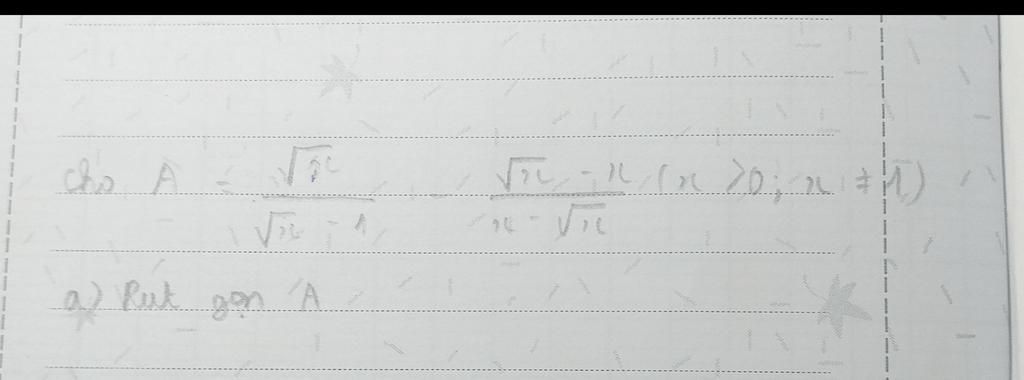 cho A = \frac{\sqrt{x}}{\sqrt{x} - 1} - \frac{\sqrt{x} - x}{x - \sqrt{x}} (x > 0; x ≠ 1)
a) Rút gọn A